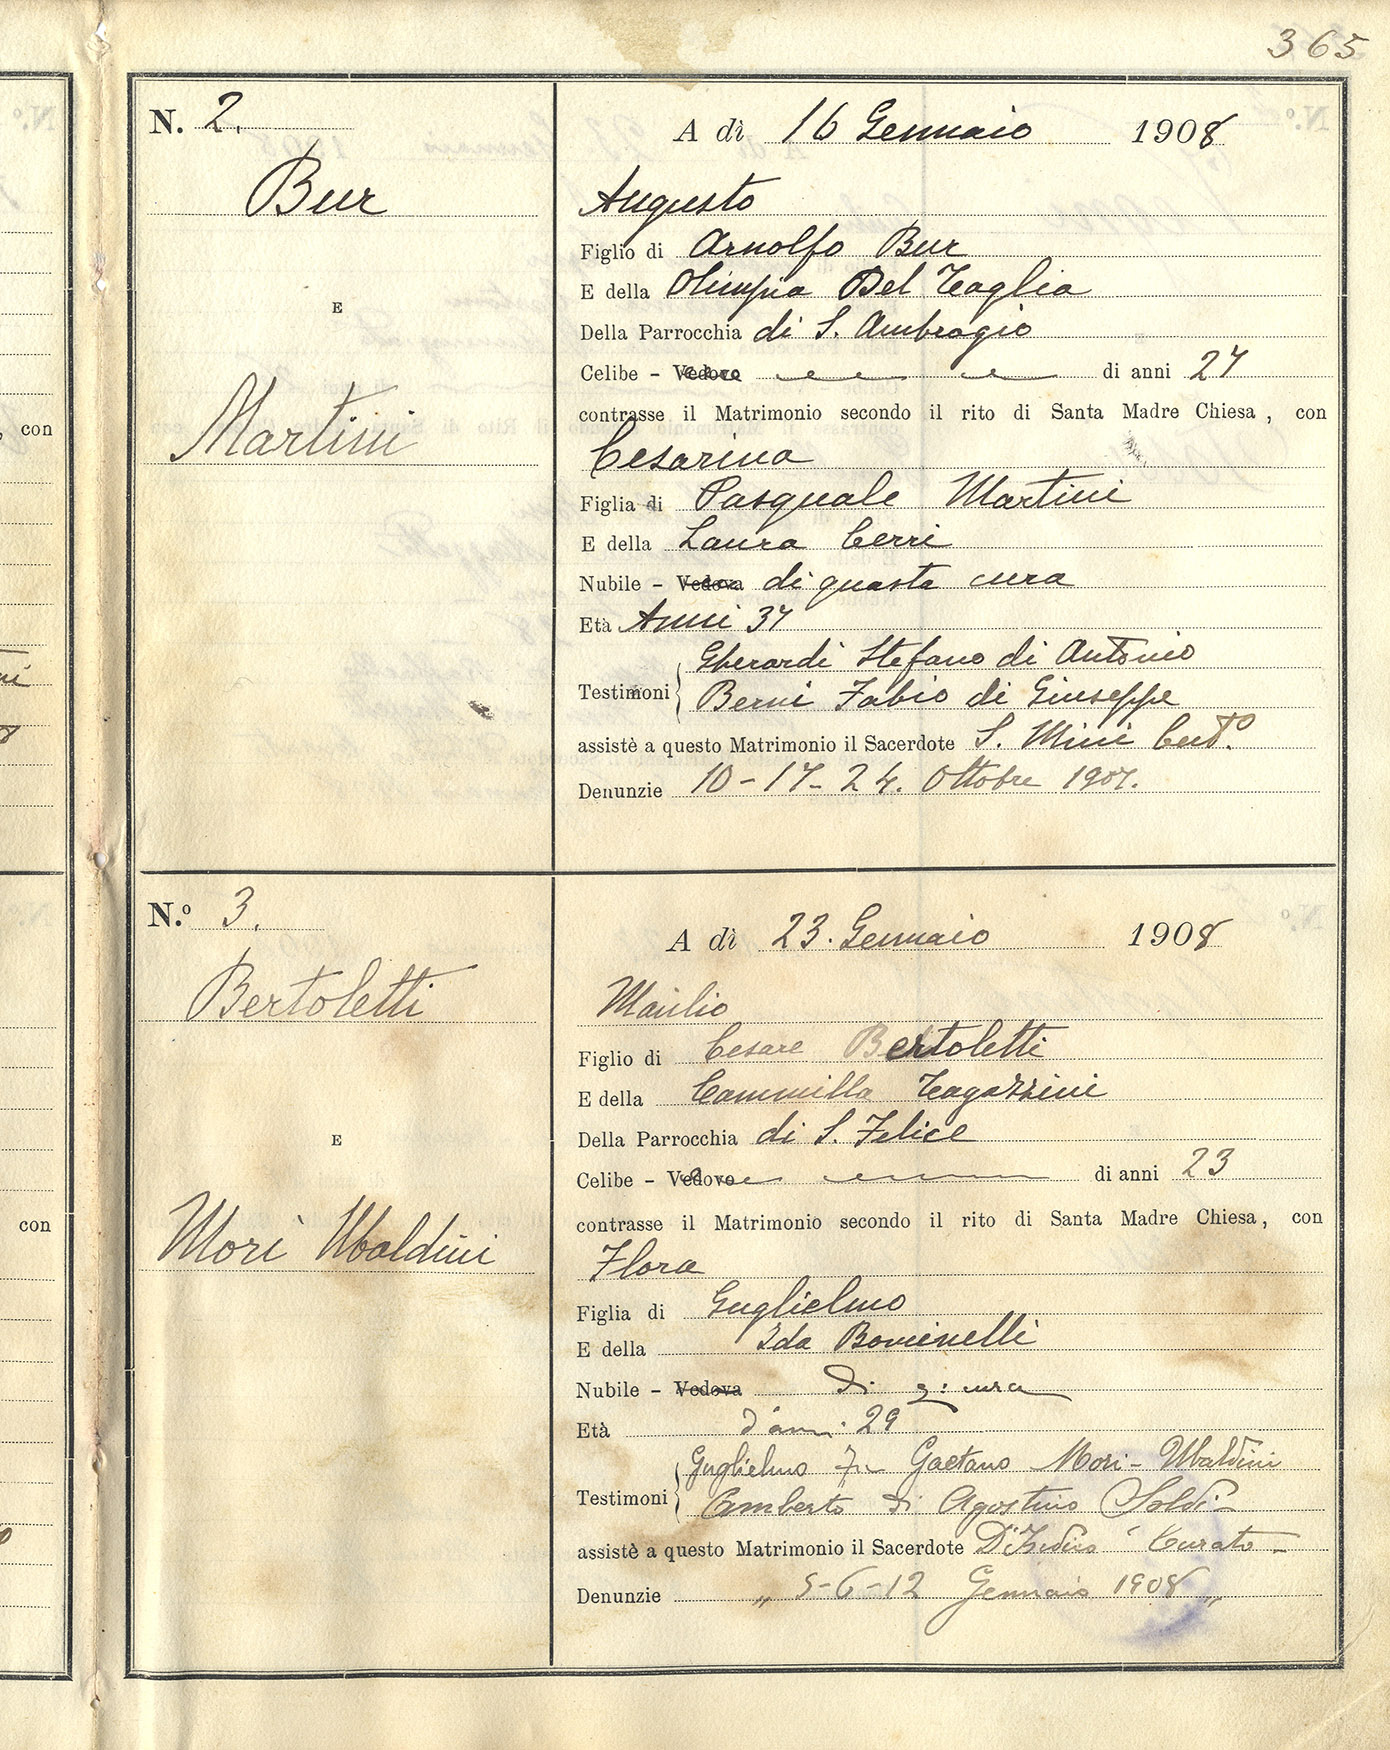 365
N. 2.
Bur
E
Martini
A dì 16 Gennaio 1908
Augusto
Figlio di Arnolfo Bur
E della Olimpia Del Taglia
Della Parrocchia di S. Ambrogio
Celibe - Vedovo di anni 27
contrasse il Matrimonio secondo il rito di Santa Madre Chiesa, con
Cesarina
Figlia di Pasquale Martini
E della Laura Cerri
Nubile - Vedova di questa cura
Età Anni 37
Gherardi Stefano di Antonio
Testimoni
Berni Fabio di Giuseppe
assistè a questo Matrimonio il Sacerdote S. Mini
Denunzie 10-17-24. Ottobre 1907.
N.º 3.
Bertoletti
E
Mori Ubaldini
A dì 23. Gennaio 1908
Manlio
Figlio di Cesare Bertoletti
E della Cammilla Tagazzini
Della Parrocchia di S. Felice
Celibe - Vedovo di anni 23
contrasse il Matrimonio secondo il rito di Santa Madre Chiesa, con
Flora
Figlia di Guglielmo
E della Ida Bominelli
Nubile - Vedova di q: cura
Età d'anni 29
Guglielmo fu Gaetano Mori-Ubaldini
Testimoni
Umberto di Agostino Soldi
assistè a questo Matrimonio il Sacerdote Curato
Denunzie „ 5-6-12 Gennaio 1908 „
con
con